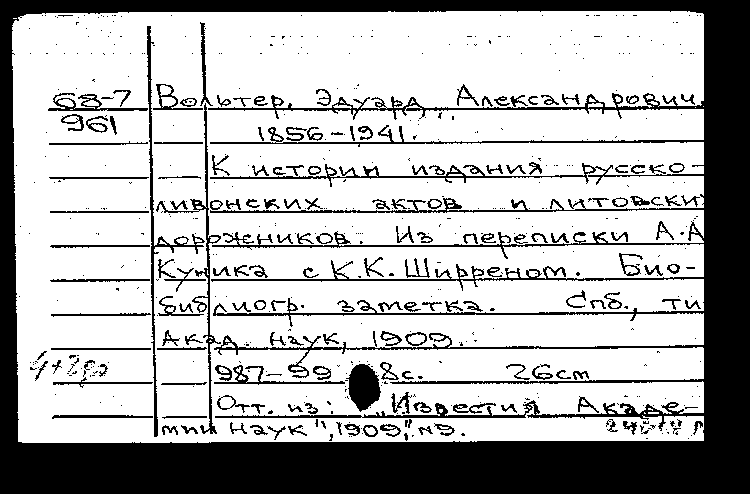 68-7 Вольтер, Эдуард Александрович,
961 1856-1941.
К истории издания русско-
ливонских актов и литовски
дорожников. Из переписки А.А
Куника с К.К. Ширреном. Био-
библиогр. заметка. Спб., ти
Акад. наук, 1909.
987-99 8с. 26см
Отт. из: „Известия Акаде-
мии наук", 1909, №9.